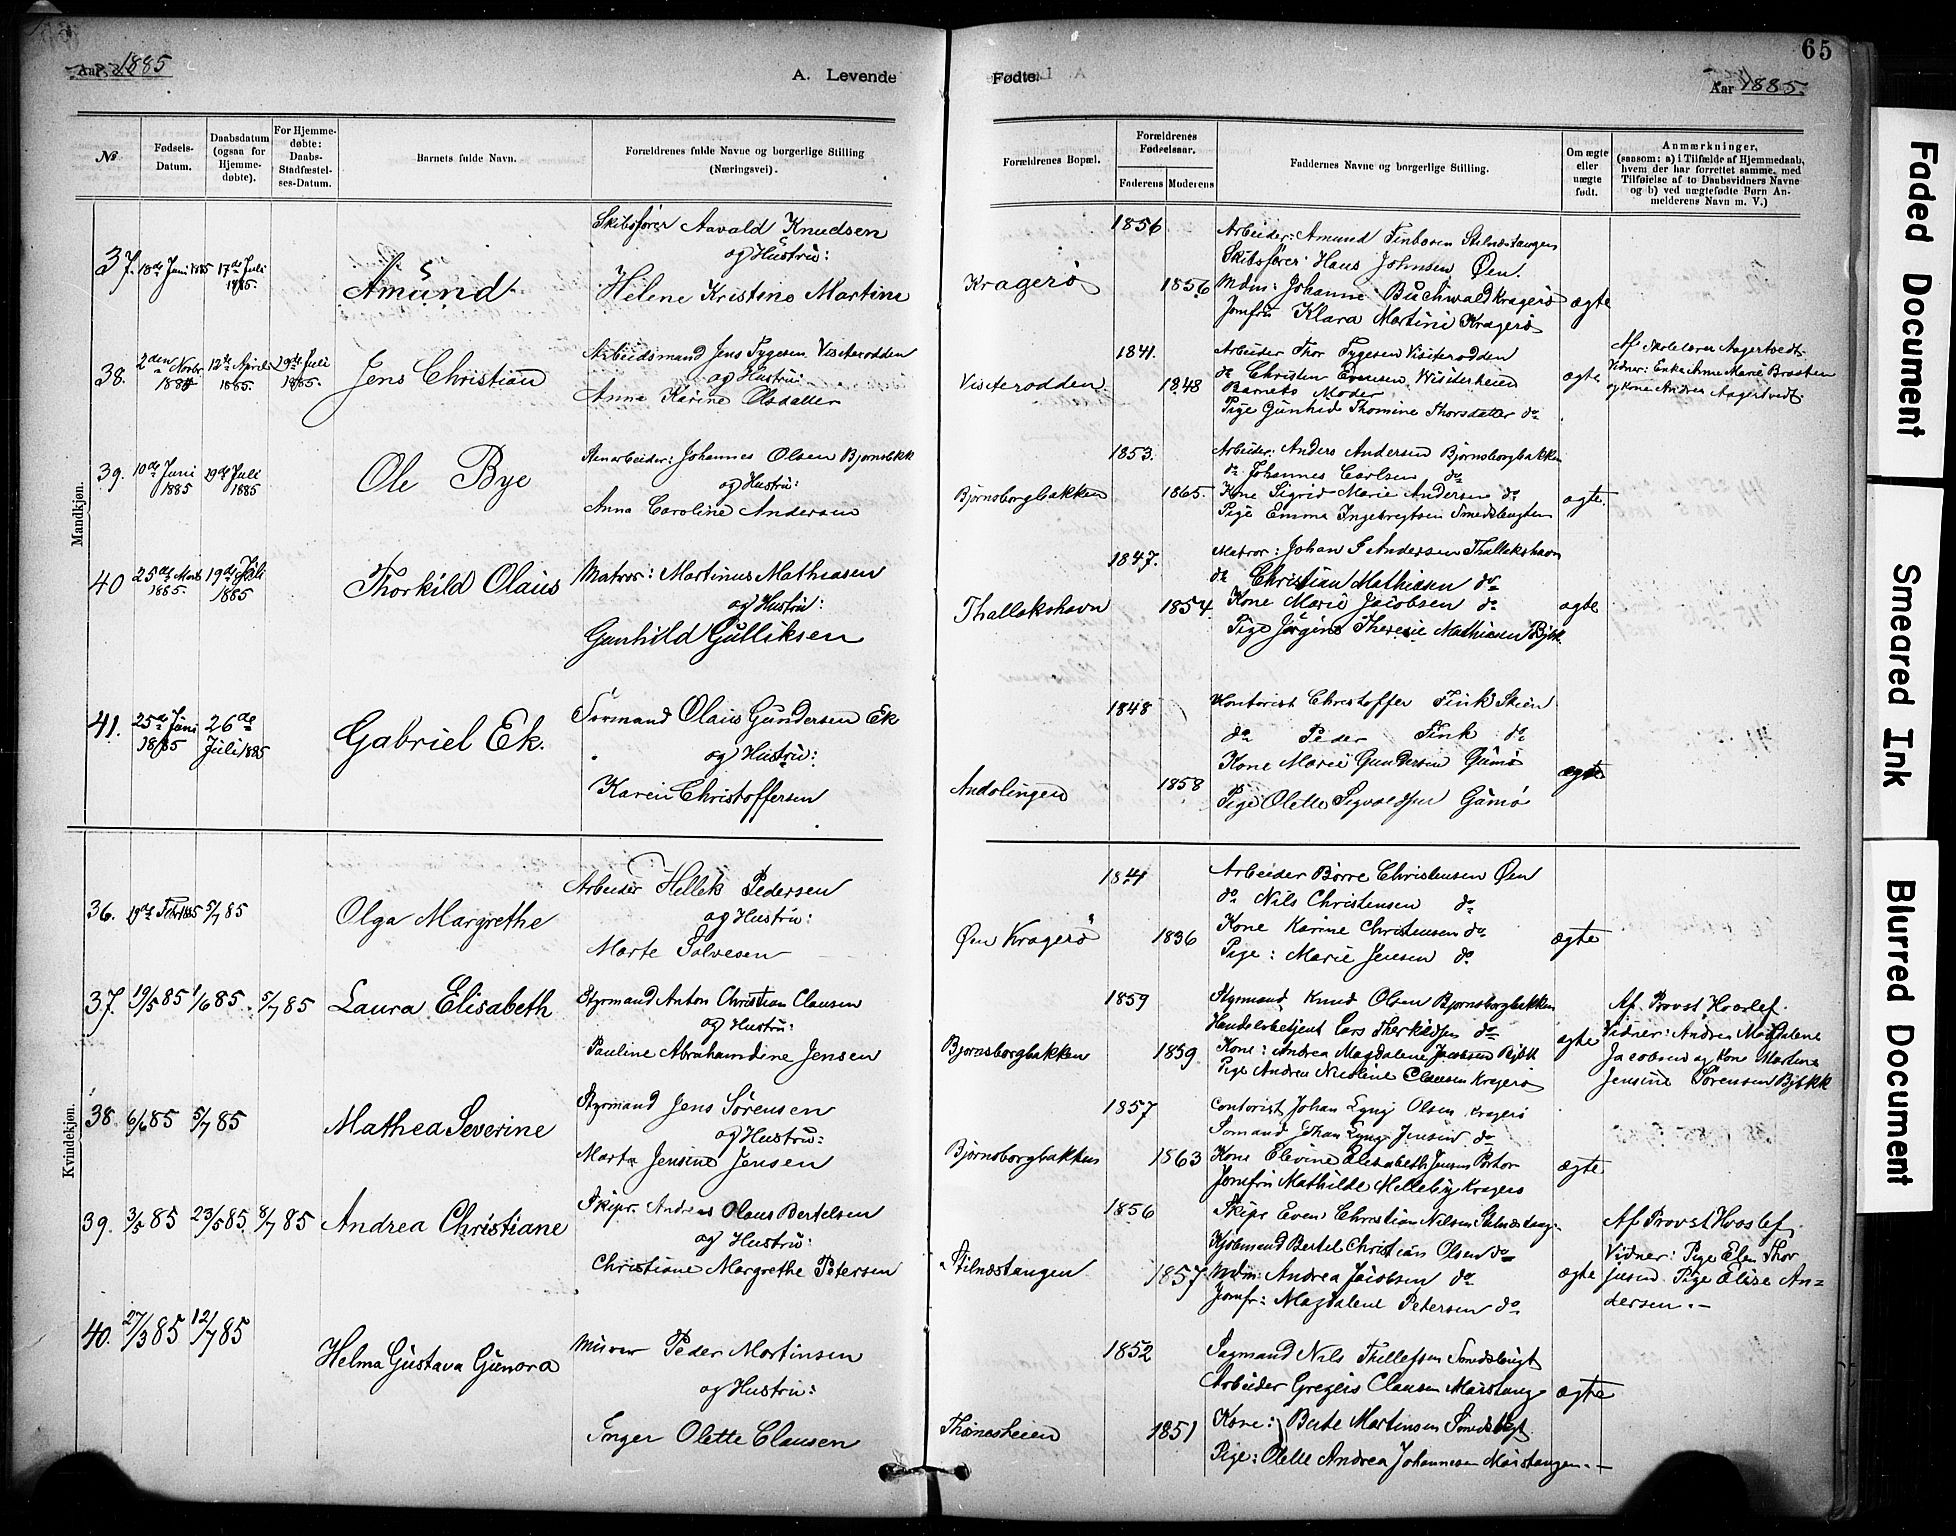 Aar 1885
A. Levende
Fødte.
Aar 1885.
65
№
Fødsels-Datum.
Daabsdatum (ogsaa for Hjemme-døbte).
For Hjemme-døbte: Daabs-Stadfæstel-ses-Datum.
Barnets fulde Navn.
Forældrenes fulde Navne og borgerlige Stilling (Næringsvei).
Forældrenes Bopæl.
Forældrenes Fødselsaar.
Faderens
Moderens
Faddernes Navne og borgerlige Stilling.
Om ægte eller uægte født.
Anmærkninger,
(saasom: a) i Tilfælde af Hjemmedaab, hvem der har forrettet samme, med Tilføielse af to Daabsvidners Navne og b) ved uægtefødte Børn An-melderens Navn m. V.)
Mandkjøn.
37. 18de Juni 1885 17de Juli 1885.
Amund
Skibsfører Aavald Knudsen
og Hustru:
Helene Kristine Martini
Kragerø
1856
1856
Arbeider: Amund Finbosen Stilnæstangen
Skibsfører Hans Johnsen Øen.
Mdm: Johanne Buchwald Kragerø
Jomfru Klara Martini Kragerø
ægte
38. 2den Novbr 1884 12te April 1885. 19de Juli 1885.
Jens Christian
Arbeidsmand Jens Tygesen Visiterodden
og Hustru:
Anna Karine Olsdatter
Visiterodden.
1841.
1848
Arbeider Thor Tygesen Visiterodden
do Christen Evensen Visiterheien
Barnets Moder
Pige Gunhild Thomine Thorsdatter do
ægte
Af Skolelærer Aagertvedt.
Vidner: Enke Anne Marie Braaten
og Kone Andrea Aagertvedt.
39. 10de Juni 1885 19de Juli 1885
Ole Bye
Stenarbeider: Johannes Olsen Bjørnsbkk
og Hustru:
Anna Caroline Andersen
Bjørnsborgbakken
1853.
1865.
Arbeider: Anders Andersen Bjørnsborgbakken
do Johannes Carlsen do
Kone Sigrid Marie Andersen do
Pige Emma Ingebregtsen Smedsbugten
ægte.
40 25de Marts 1885. 19de Juli 1885
Thorkild Olaus
Matros: Martinus Mathiasen
og Hustru:
Gunhild Gulliksen
Thallakshavn
1847.
1854.
Matros: Johan S Andersen Thallakshavn
do Christian Mathiasen do
Kone Marie Jacobsen do
Pige Jørgine Theresie Mathiasen Bjbk
ægte
41. 25de Juni 1885 26de Juli 1885
Gabriel Ek.
Sømand Olaus Gundersen Ek
og Hustru:
Karen Christoffersen
Andolingen
1848
1858
Kontorist Christoffer Fink Skien
do Peder Fink do
Kone Marie Gundersen Gumø
Pige Olette Sigvaldsen Gumø
ægte
Kvindekjøn.
36. 19de Febr 1885 5/7 85
Olga Margrethe
Arbeider Hellek Pedersen
og Hustru:
Marte Solvesen
Øen Kragerø
1841
1836
Arbeider Børre Christensen Øen
do Nils Christensen do
Kone Karine Christensen do
Pige: Marie Jensen do
ægte
37. 19/5 85 1/6 85. 5/7 85
Laura Elisabeth
Styrmand Anton Christian Clausen
og Hustru:
Pauline Abrahamdine Jensen
Bjørnsborgbakken
1859
1859
Styrmand Knud Olsen Bjørnsborgbakken
Handelsbetjent Lars Therkildsen do
Kone: Andrea Magdalene Jacobsen Bjbk
Pige Andrea Nicoline Clausen Kragerø
ægte
Af Provst Hvoslef.
Vidner: Andrea Magdalene
Jacobsen og Kone Martine
Jensine Sørensen Bjbkk
38. 6/6 85 5/7 85
Mathea Severine
Styrmand Jens Sørensen
og Hustru:
Marte Jensine Jensen
Bjørnsborgbakken
1857
1863
Contorist Johan Lyng Olsen Kragerø
Sømand Johan Lyng Jensen do
Kone Elevine Elisabeth Jensen Portør
Jomfru Mathilde Melleby Kragerø
ægte
39. 3/5 85 23/5 85. 8/7 85
Andrea Christiane
Skipr. Andreas Olaus Bertelsen
og Hustru:
Christiane Margrethe Petersen
Stilnæstangen
1856
1857
Skipr Even Christian Nilsen Stilnæstang.
Kjøbmand Bertel Christian Olsen do
Mdm. Andrea Jacobsen do
Jomfr: Magdalene Petersen do.
ægte
Af Provst Hvoslef.
Vidner: Pige Elen Thor
jusen Pige Elise An=
dersen.–
40. 27/3 85 12/7 85
Helma Gustava Gunora
Murer Peder Martinsen
og Hustru:
Inger Olette Clausen
Thomesheien
1852
1851
Sagmand Nils Thellefsen Smedsbugt
Arbeider Gregers Clausen Maistang
Kone: Berte Martinsen Smedsbugt
Pige: Olette Andrea Johannesen Maistangen.–
ægte
Faded Document
Smeared Ink
Blurred Document